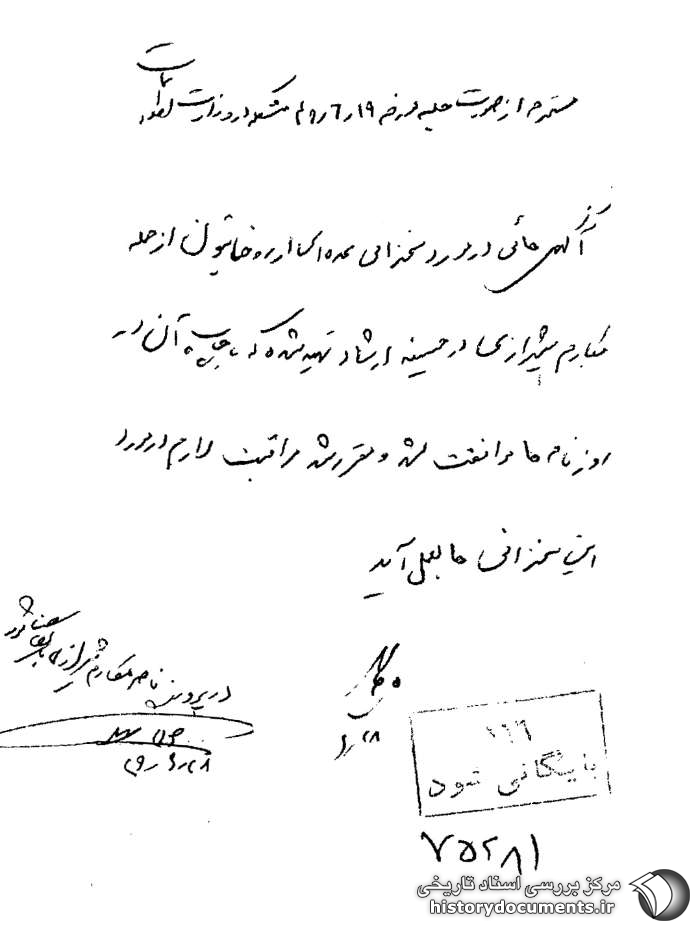 مستخرجه از صورت جلسه مورخه ۱۹ر۶ر۴۹ متشکله در وزارت اطلاعات
آگهی هائی در مورد سخنرانی عده ای از روحانیون از جمله
مکارم شیرازی در حسینیه ارشاد تهیه شده که با چاپ آن در
روزنامه ها موافقت نشد و مقرر شد مراقبت لازم در مورد
این سخنرانی ها بعمل آید
در پرونده ناصر مکارم شیرازی بایگانی شود
۲۸ر۶ر۴۹
۲۸ر۶
۱۱۶
بایگانی شود
۷۵۲۸۱
مرکز بررسی اسناد تاریخی
historydocuments.ir